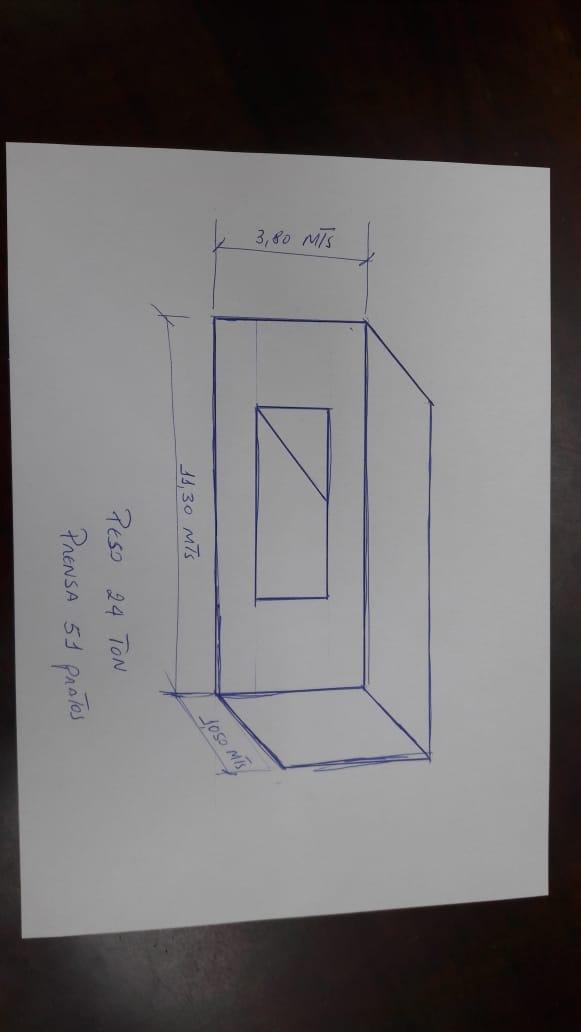 3,80 MTS
11,30 MTS
1,050 MTS
PESO 24 TON
PRENSA 51 PRATOS